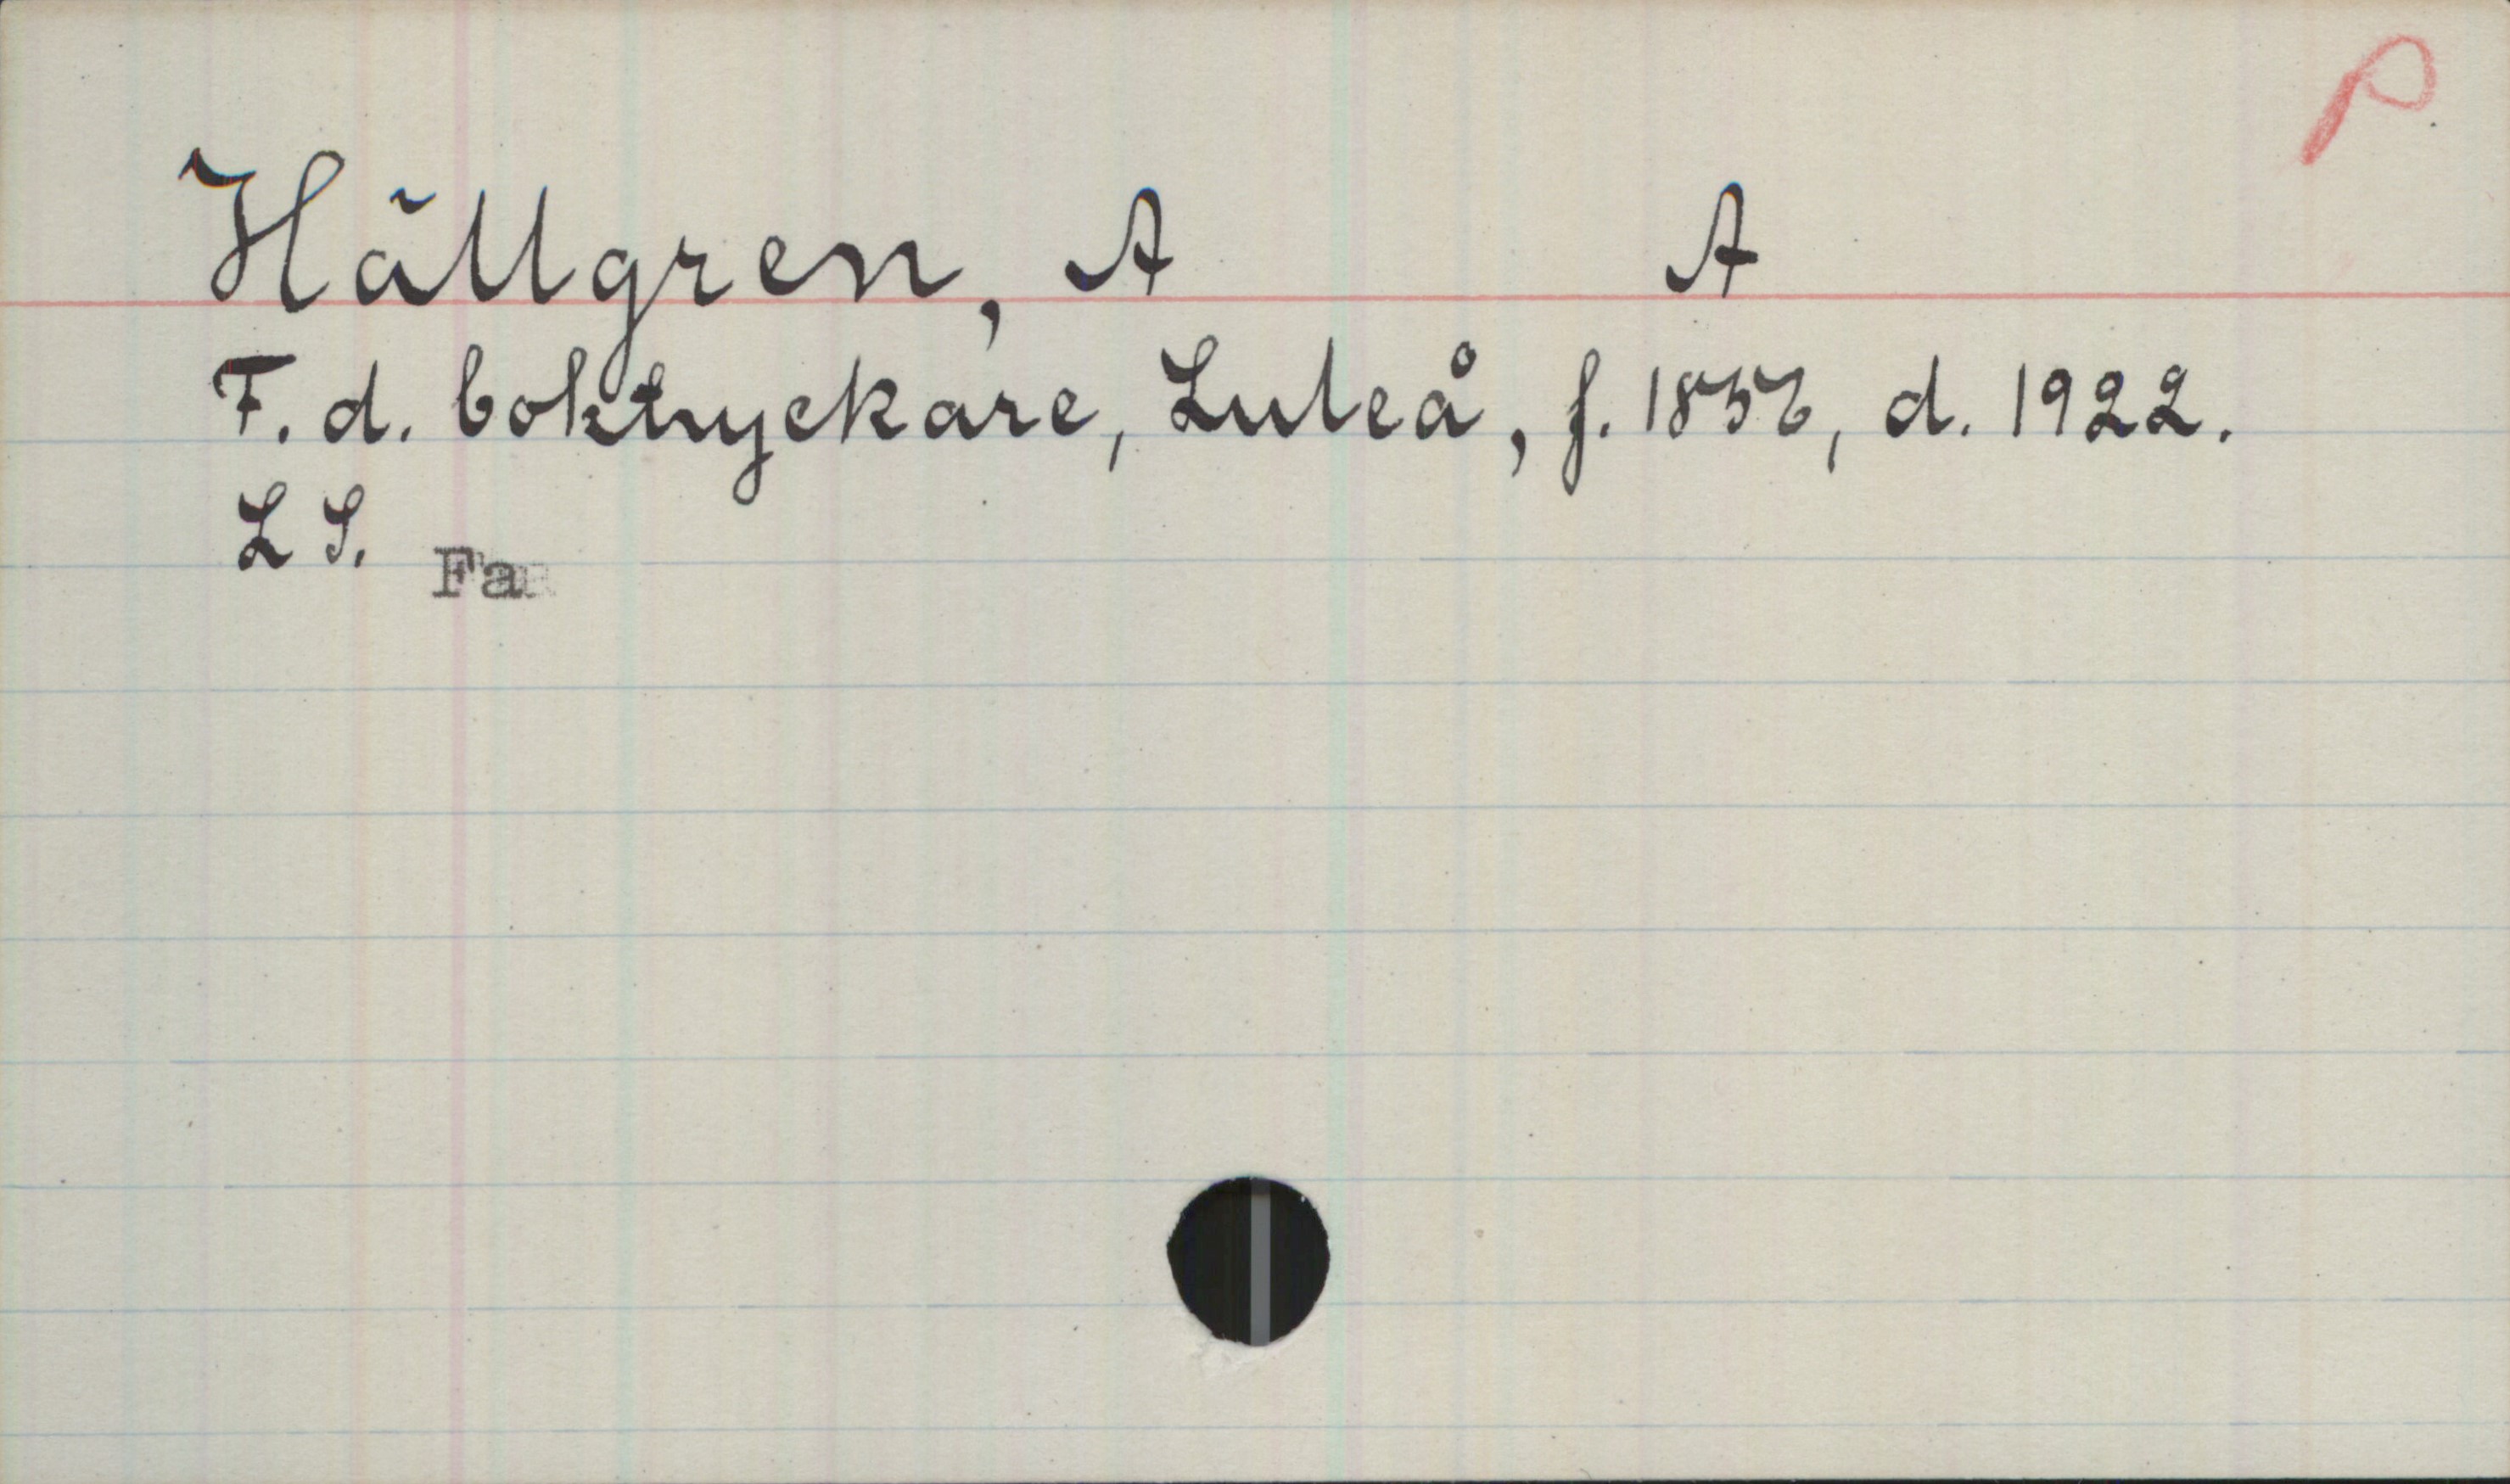 P
Hällgren, A A
F. d. boktryckare, Luleå, f. 1856, d. 1922.
L S.